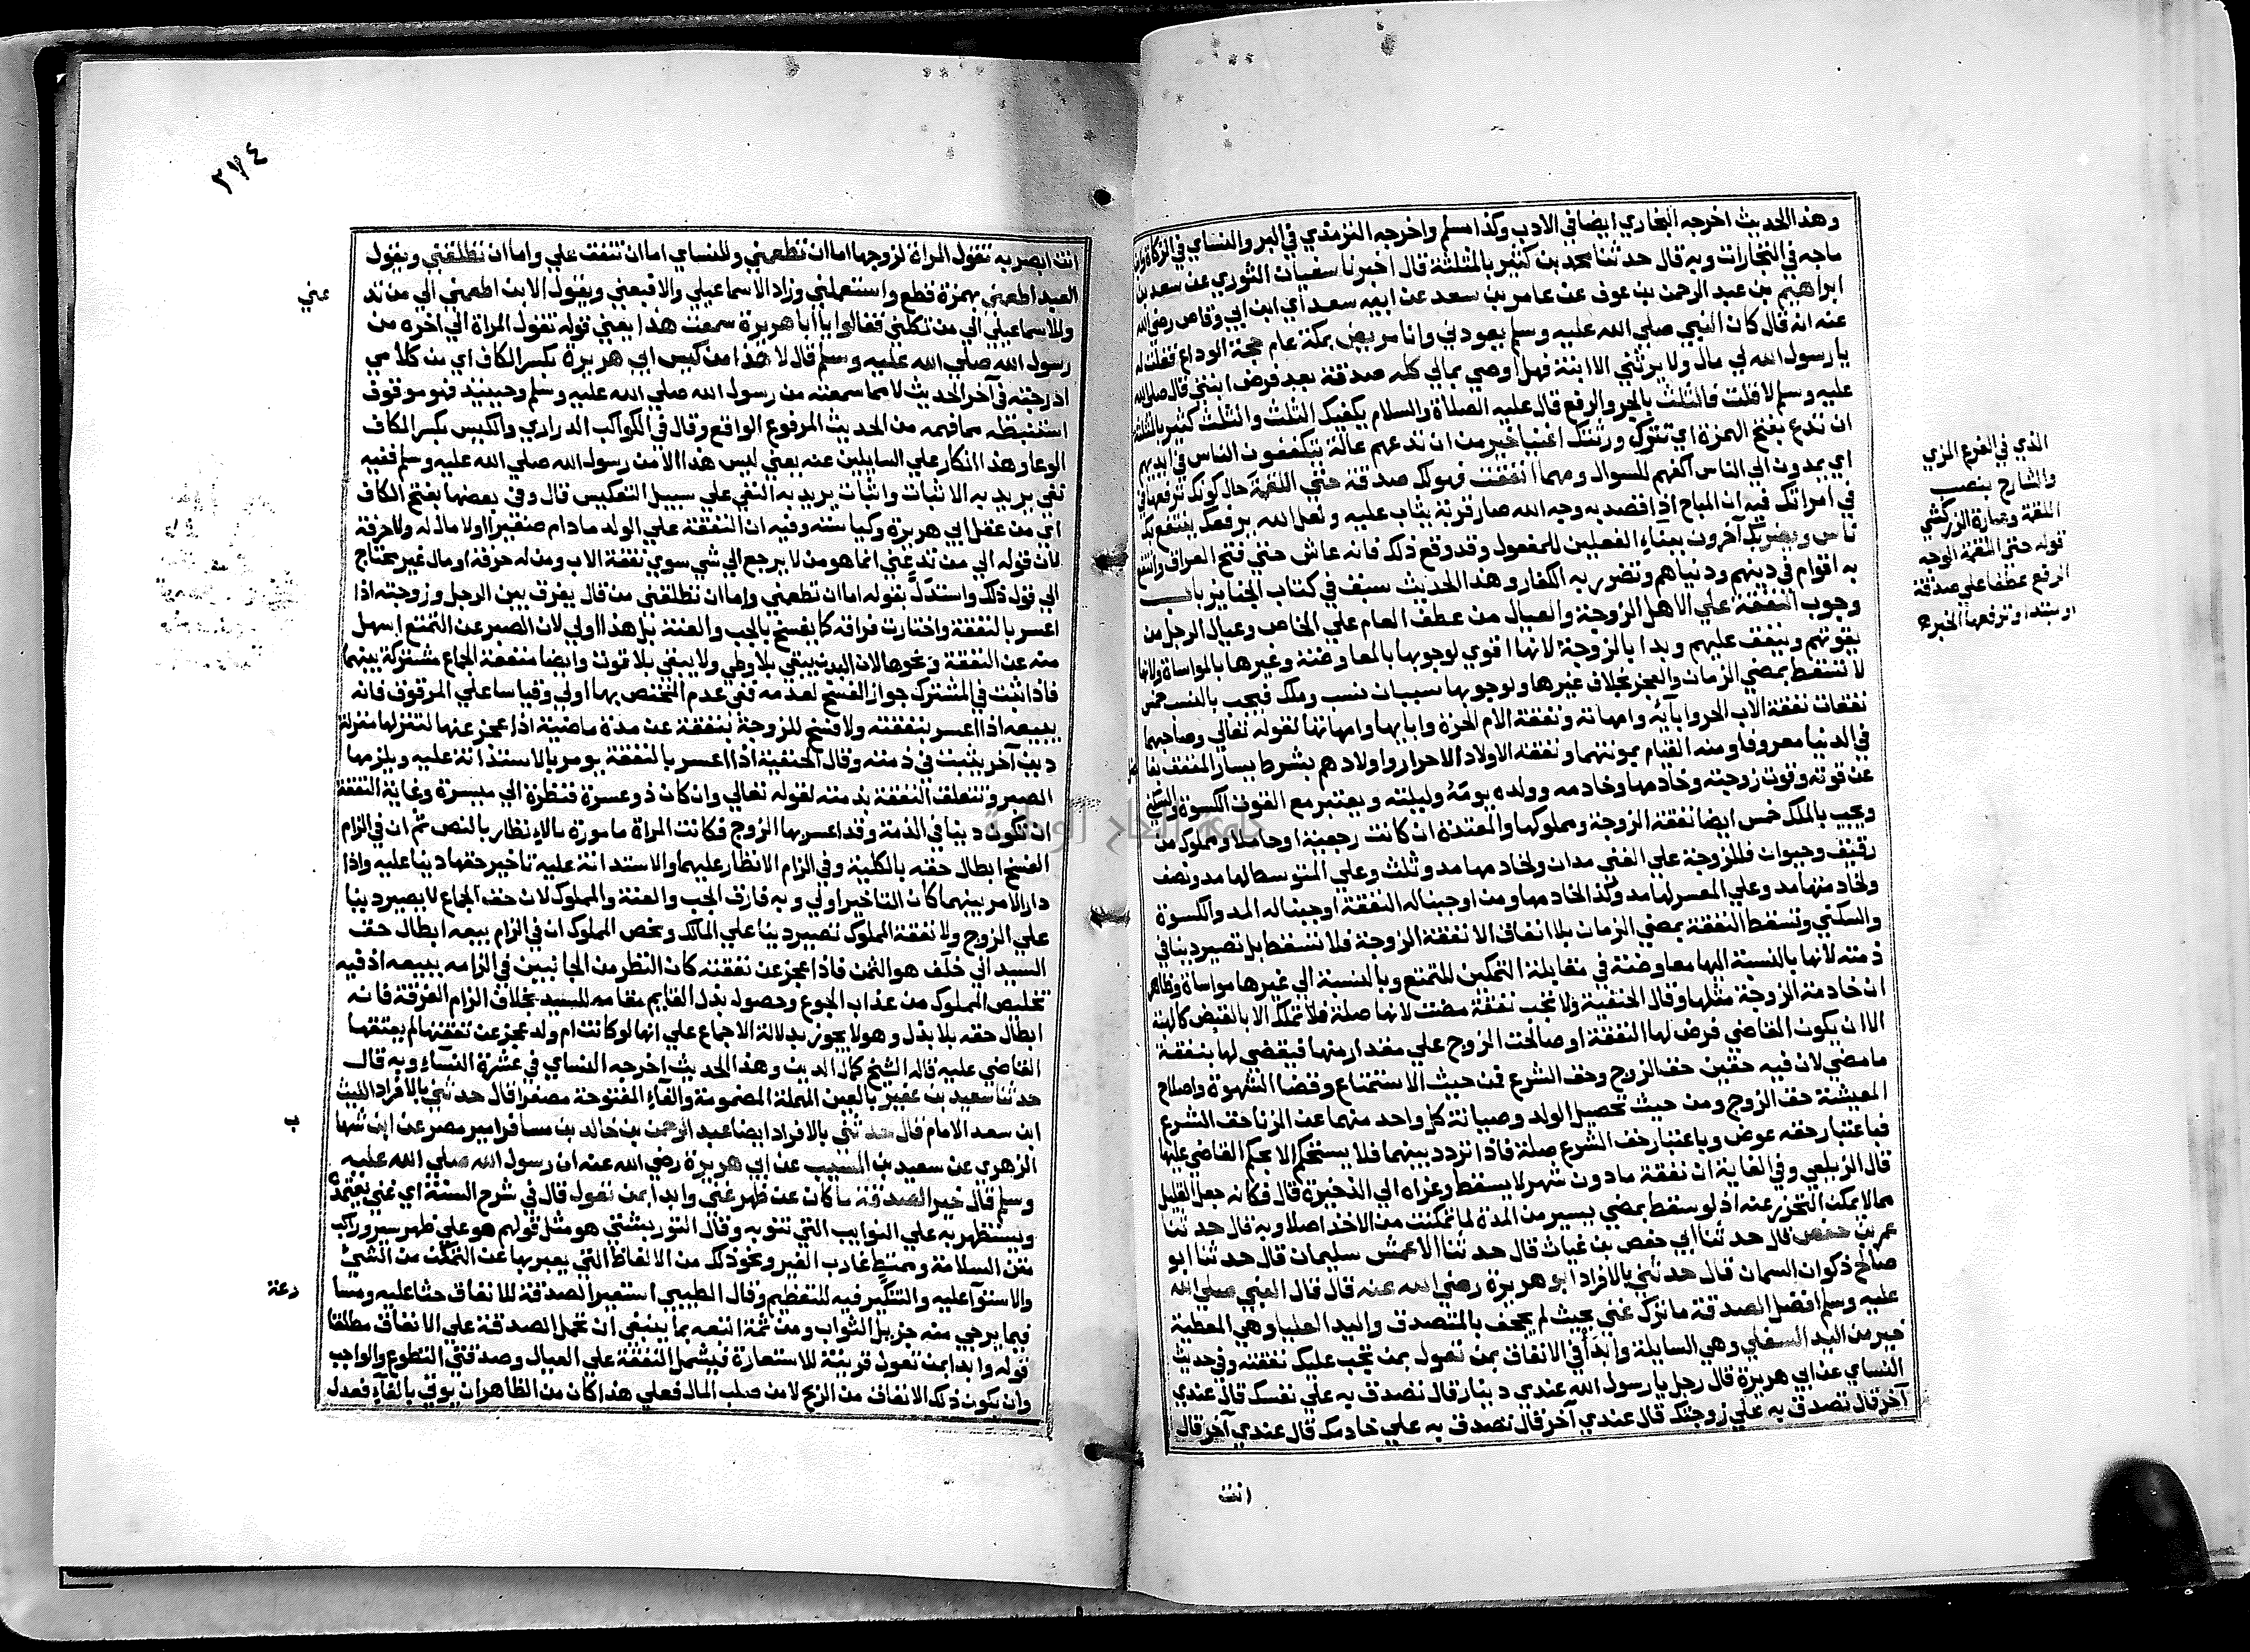 وهذا الحديث اخرجه البخاري ايضا في الادب وكذا مسلم واخرجه الترمذي في البر والنساي في الزكاة وابن
ماجه في التجارات وبه قال حدثنا محمد بن كثير بالمثلثة قال اخبرنا سفيان الثوري عن سعد بن
ابراهيم بن عبد الرحمن بن عوف عن عامر بن سعد عن ابيه سعد اي ابن ابي وقاص رضي الله
عنه انه قال كان النبي صلي الله عليه وسلم يعودني وانا مريض بمكة عام حجة الوداع فقلت له
يا رسول الله لي مال ولا يرثني الا ابنة فهل اوصي بمالي كله صدقة بعد فرض ابنتي قال صلي الله
عليه وسلم لا قلت فالثلث بالجر والرفع قال عليه الصلاة والسلام يكفيك الثلث والثلث كثير بالمثلثة
ان تدع بفتح الهمزة اي تترك ورثتك اغنيا خير من ان تدعهم عالة يتكففون الناس في ايديهم
اي يمدون الي الناس اكفهم للسوال ومهما انفقت فهو لك صدقة حتي اللقمة حال كونك ترفعها في
في امراتك فيه ان المباح اذا قصد به وجه الله صار قربة يثاب عليه ولعل الله يرفعك ينتفع بك
ناس ويضر بك آخرون ببناء الفعلين للمفعول وقد وقع ذلك فانه عاش حتي فتح العراق وانتفع
به اقوام في دينهم ودنياهم وتضرر به الكفار وهذا الحديث سبق في كتاب الجنايز باب
وجوب النفقة علي الاهل الزوجة والعيال من عطف العام علي الخاص وعيال الرجل من
يقوتهم وينفق عليهم وبدا بالزوجة لانها اقوي لوجوبها بالمعاوضة وغيرها بالمواساة ولانها
لا تسقط بمضي الزمان والعجز بخلاف غيرها ولوجوبها سببان نسب وملك فيجب بالنسب خمس
نفقات نفقة الاب الحر وابايه وامهاته ونفقة الام الحرة وابايها وامهاتها لقوله تعالي وصاحبهما
في الدنيا معروفا ومنه القيام بمونتهما ونفقة الاولاد الاحرار واولادهم بشرط يسار المنفق بفاضل
عن قوته وقوت زوجته وخادمها وخادمه وولده يومه وليلته ويعتبر مع القوت الكسوة والسكني
ويجب بالملك خمس ايضا نفقة الزوجة ومملوكها والمعتدة ان كانت رجعية او حاملا ومملوك من
رقيق وحيوان فللزوجة علي الغني مدان ولخادمها مد وثلث وعلي المتوسط لها مد ونصف
ولخادمتها مد وعلي المعسر لها مد وكذا لخادمها ومن اوجبنا له النفقة اوجبنا له المد والكسوة
والسكني وتسقط النفقة بمضي الزمان بلا انفاق الا نفقة الزوجة فلا تسقط بل تصير دينا في
ذمته لانها بالنسبة اليها معاوضة في مقابلة التمكين للتمتع وبالنسبة الي غيرها مواساة وظاهر
ان خادمة الزوجة مثلها وقال الحنفية ولا تجب نفقة مضت لانها صلة فلا تملك الا بالقبض كالهبة
الا ان يكون القاضي فرض لها النفقة او صالحت الزوج علي مقدار منها فيقضي لها بنفقة
ما مضي لان فيه حقين حق الزوج وحق الشرع فمن حيث الاستمتاع وقضا الشهوة واصلاح
المعيشة حق الزوج ومن حيث تحصيل الولد وصيانة كل واحد منهما عن الزنا حق الشرع
فباعتبار حقه عوض وباعتبار حق الشرع صلة فاذا تردد بينهما فلا يستحكم الا بحكم القاضي عليها
قال الزيلعي وفي الغاية ان نفقة ما دون شهر لا يسقط وعزاه الي الذخيرة قال فكانه جعل القليل
مما لا يمكن التحرز عنه اذ لو سقط بمضي يسير من المدة لما تمكنت من الاخذ اصلا وبه قال حدثنا
عمر بن حفص قال حدثنا ابي حفص بن غياث قال حدثنا الاعمش سليمان قال حدثنا ابو
صالح ذكوان السمان قال حدثني بالافراد ابو هريرة رضي الله عنه قال قال النبي صلي الله
عليه وسلم افضل الصدقة ما ترك غني بحيث لم يجحف بالمتصدق واليد العليا وهي المعطية
خير من اليد السفلي وهي السايلة وابدأ في الانفاق بمن تعول بمن تجب عليك نفقته وفي حديث
النساي عن ابي هريرة قال رجل يا رسول الله عندي دينار قال تصدق به علي نفسك قال عندي
آخر قال تصدق به علي زوجتك قال عندي آخر قال تصدق به علي خادمك قال عندي آخر قال
انت
الذي في الفرع المزي
والشارح بنصب
اللقمة وعبارة الزركشي
قوله حتي اللقمة الوجه
الرفع عطفا علي صدقة
او مبتدا وترفعها الخبر
٢٧٤
انت ابصر به تقول المراة لزوجها اما ان تطعمني وللنساي اما ان تنفق علي واما ان تطلقني ويقول
العبد اطعمني بهمزة قطع واستعملني وزاد الاسماعيلي والا فبعني ويقول الابن اطعمني الي من تد
عني
وللاسماعيلي الي من تكلني فقالوا يا أبا هريرة سمعت هذا يعني قوله تقول المراة الي اخره من
رسول الله صلي الله عليه وسلم قال لا هذا من كيس ابي هريرة بكسر الكاف اي من كلامي
ادرجته في آخر الحديث لا مما سمعته من رسول الله صلي الله عليه وسلم وحينيذ فهو موقوف
استنبطه مما فهمه من الحديث المرفوع الواقع وقال في الكواكب الدراري والكيس بكسر الكاف
الوعا وهذا انكار علي السايلين عنه يعني ليس هذا الا من رسول الله صلي الله عليه وسلم ففيه
نفي يريد به الاثبات واثبات يريد به النفي علي سبيل التعكيس قال وفي بعضها بفتح الكاف
اي من عقل ابي هريرة وكياسته وفيه ان النفقة علي الولد ما دام صغيرا او لا مال له ولا حرفة
لان قوله الي من تدعني انما هو من لا يرجع الي شي سوي نفقة الاب ومن له حرفة او مال غير محتاج
الي قول ذلك واستدل بقوله اما ان تطعمني واما ان تطلقني من قال يفرق بين الرجل وزوجته اذا
اعسر بالنفقة واختارت فراقه كما يفسخ بالجب والعنة بل هذا اولي لان الصبر عن التمتع اسهل
منه عن النفقة ونحوها لان البدن يبقي بلا وطي ولا يبقي بلا قوت وايضا منفعة الجماع مشتركة بينهما
فاذا ثبت في المشترك جواز الفسخ لعدمه ففي عدم المختص بها اولي وقياسا علي المرقوق فانه
يبيعه اذا اعسر بنفقته ولا فسخ للزوجة بنفقة عن مدة ماضية اذا عجز عنها لتنزلها منزلة
دين آخر يثبت في ذمته وقال الحنفية اذا اعسر بالنفقة يومر بالاستدانة عليه ويلزمها
الصبر وتتعلق النفقة بذمته لقوله تعالي وان كان ذو عسرة فنظرة الي ميسرة وغاية النفقة
ان تكون دينا في الذمة وقد اعسر بها الزوج فكانت المراة مامورة بالانظار بالنص ثم ان في الزام
الفسخ ابطال حقه بالكلية وفي الزام الانظار عليهما والاستدانة عليه تاخير حقها دينا عليه واذا
دار الامر بينهما كان التاخير اولي وبه فارق الجب والعنة والمملوك لان حق الجماع لا يصير دينا
علي الزوج ولا نفقة المملوك تصير دينا علي المالك ويخص المملوك ان في الزام بيعه ابطال حق
السيد الي خلف هو الثمن فاذا عجز عن نفقته كان النظر من الجانبين في الزامه ببيعه اذ فيه
تخليص المملوك من عذاب الجوع وحصول بدل القايم مقامه للسيد بخلاف الزام الفرقة فانه
ابطال حقه بلا بدل وهو لا يجوز بدلالة الاجماع علي انها لو كانت ام ولد عجز عن نفقتها لم يعتقها
القاضي عليه قاله الشيخ كمال الدين وهذا الحديث اخرجه النساي في عشرة النساء وبه قال
حدثنا سعيد بن عفير بالعين المهملة المضمومة والفاء المفتوحة مصغرا قال حدثني بالافراد الليث
ابن سعد الامام قال حدثني بالافراد ايضا عبد الرحمن بن خالد بن مسافر امير مصر عن ابن شها
ب
الزهري عن سعيد بن المسيب عن ابي هريرة رضي الله عنه ان رسول الله صلي الله عليه
وسلم قال خير الصدقة ما كان عن ظهر غني وابدا بمن تعول قال في شرح السنة اي غني يعتمده
ويستظهر به علي النوايب التي تنوبه وقال التوربشتي هو مثل قولهم هو علي ظهر سير وراكب
متن السلامة وممتط غارب الغير ونحو ذلك من الالفاظ التي يعبر بها عن التمكن من الشيء
والاستوآ عليه والتنكير فيه للتعظيم وقال الطيبي استعير الصدقة للانفاق حثا عليه ومسا
رعة
فيما يرجي منه جزيل الثواب ومن ثمة اتبعه بما ينبغي ان تحمل الصدقة علي الانفاق مطلقا
قوله وابدا بمن تعول قرينة للاستعارة فيشمل النفقة علي العيال وصدقتي التطوع والواجب
وان يكون ذلك الانفاق من الربح لا من صلب المال فعلي هذا كان من الظاهر ان يوتي بالفآء فعدل